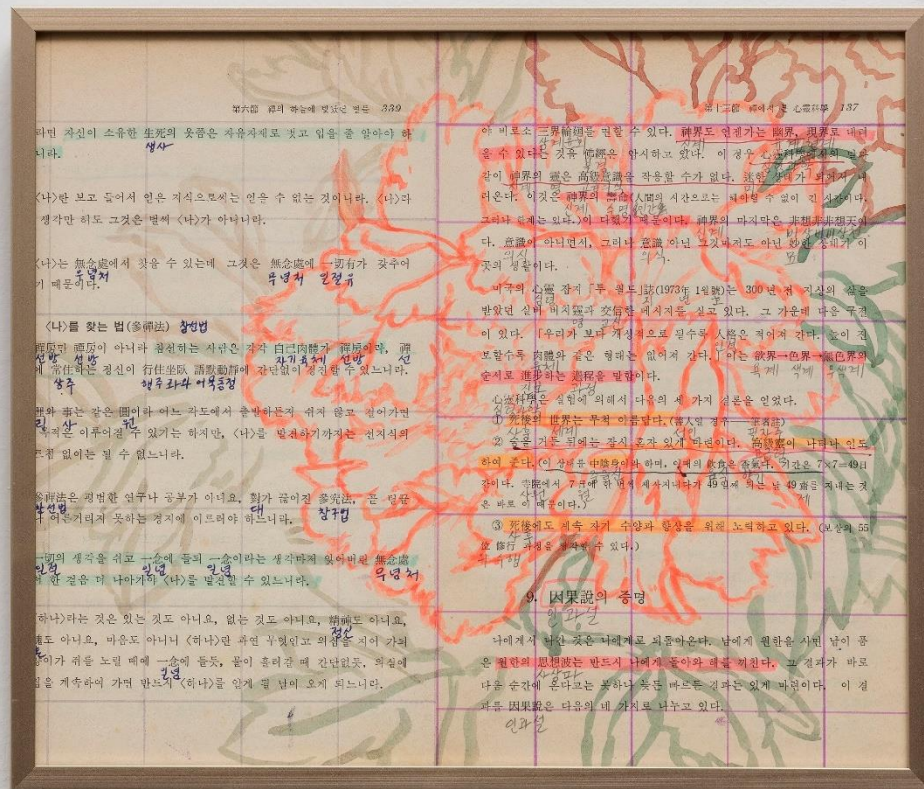 第六節 禪의 하늘에 빛났던 별들 339
라면 자신이 소유한 生死의 옷쯤은 자유자재로 벗고 입을 줄 알아야 하
생사
니라.
〈나〉란 보고 들어서 얻은 지식으로써는 얻을 수 없는 것이니라. 〈나〉라
생각만 해도 그것은 벌써 〈나〉가 아니니라.
〈나〉는 無念處에서 찾을 수 있는데 그것은 無念處에 一切有가 갖추어
무념처 무념처 일절유
기 때문이다.
〈나〉를 찾는 법(參禪法) 참선법
禪房만 禪房이 아니라 참선하는 사람은 각각 自己肉體가 禪房이라, 禪
선방 선방 자기육체 선방 선
에 常住하는 정신이 行住坐臥 語默動靜에 간단없이 정진할 수 있느니라.
상주 행주좌와 어묵동정
理와 事는 같은 圓이라 어느 각도에서 출발하든지 쉬지 않고 걸어가면
리 원
목적은 이루어질 수 있기는 하지만, 〈나〉를 발견하기까지는 선지식의
없이는 될 수 없느니라.
參禪法은 평범한 연구나 공부가 아니요, 對가 끊어진 參究法, 곧
참선법 대 참구법
어른거리지 못하는 경지에 이르러야 하느니라.
一切의 생각을 쉬고 一念에 들되 一念이라는 생각마저 잊어버린 無念處
일절 일념 일념 무념처
한 걸음 더 나아가야 〈나〉를 발견할 수 있느니라.
〈하나〉라는 것은 있는 것도 아니요, 없는 것도 아니요, 精神도 아니요,
정신
도 아니요, 마음도 아니니 〈하나〉란 과연 무엇인고 의심을 지어 가되
고양이가 쥐를 노릴 때에 一念에 들듯, 물이 흘러갈 때 간단없듯, 의심에
일념
을 계속하여 가면 반드시 〈하나〉를 알게 될 날이 오게 되느니라.
第十三節 禪에서 본 心靈科學 137
야 비로소 三界輪廻를 면할 수 있다. 神界도 언젠가는 幽界, 現界로 내려
삼계윤회 신계
올 수 있다는 것을 佛經은 암시하고 있다. 이 경우
같이 神界의 靈은 高級意識을 작용할 수가 없다. 迷한 상태가 되어서 내
려온다. 이것은 神界의 壽命(人間의 시간으로는 헤아릴 수 없이 긴 시간이다.
신계 수명
그러나 한계는 있다.)이 다했기 때문이다. 神界의 마지막은 非想非非想天이
신계 비상비비상천
다. 意識이 아니면서, 그러나 意識 아닌 그것마저도 아닌 묘한 상태가 이
의식 의식
곳의 생활이다.
미국의 心靈 잡지 「투 월드」誌(1973年 1월號)는 300년 전 지상의 삶을
심령 지 년 호
받았던 실버 버치靈과 交信한 메시지를 싣고 있다. 그 가운데 다음 구절
이 있다. 「우리가 보다 개성적으로 될수록 人格은 적어져 간다. 높이 진
보할수록 肉體와 같은 형태는 없어져 간다.」 이는 欲界→色界→無色界의
육체 욕계 색계 무색계
순서로 進步하는 過程을 말함이다.
진보 과정
心靈科學은 실험에 의해서 다음의 세 가지 결론을 얻었다.
심령과학
① 死後의 世界는 무척 아름답다.(善人일 경우 筆者註)
사후 세계 선인 필자주
② 숨을 거둔 뒤에는 잠시 혼자 있게 마련이다. 高級靈이 나타나 인도
하여 준다.(이 상태를 中陰身이라 하며, 일체의 飮食은 香氣다. 기간은 7×7=49日
간이다. 寺院에서 7日에 한 번씩 제사지내다가 49일째 되는 날 49齋를 지내는 것
은 바로 이 때문이다.)
③ 死後에도 계속 자기 수양과 향상을 위해 노력하고 있다. (보살의 55
位 修行 과정을 생각할 수 있다.)
9. 因果說의 증명
인과설
나에게서 나간 것은 나에게로 되돌아온다. 남에게 원한을 사면 남이 품
은 원한의 思想波는 반드시 나에게 돌아와 해를 끼친다. 그 결과가 바로
사상파
다음 순간에 온다고는 못하나 늦든 빠르든 결과는 있게 마련이다. 이 결
과를 因果說은 다음의 네 가지로 나누고 있다.
인과설